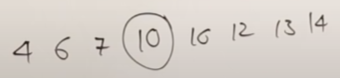 4 6 7 10 10 12 13 14